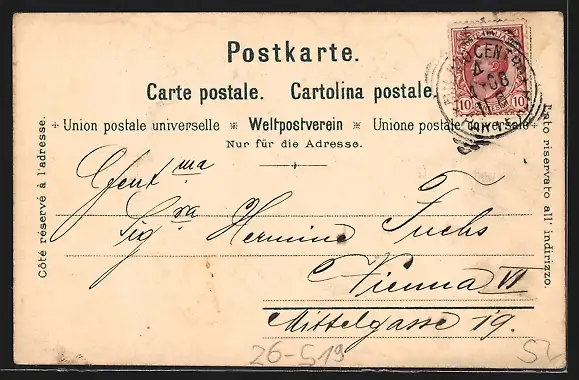 Postkarte.
Carte postale. Cartolina postale.
Union postale universelle ※ Weltpostverein ※ Unione postale universale
Nur für die Adresse.
Côté réservé à l'adresse.
Lato riservato all' indirizzo.
10 10
Gent ma
Sig ra Hermine Fuchs
Vienna VI
Mittelgasse 19.
26-519